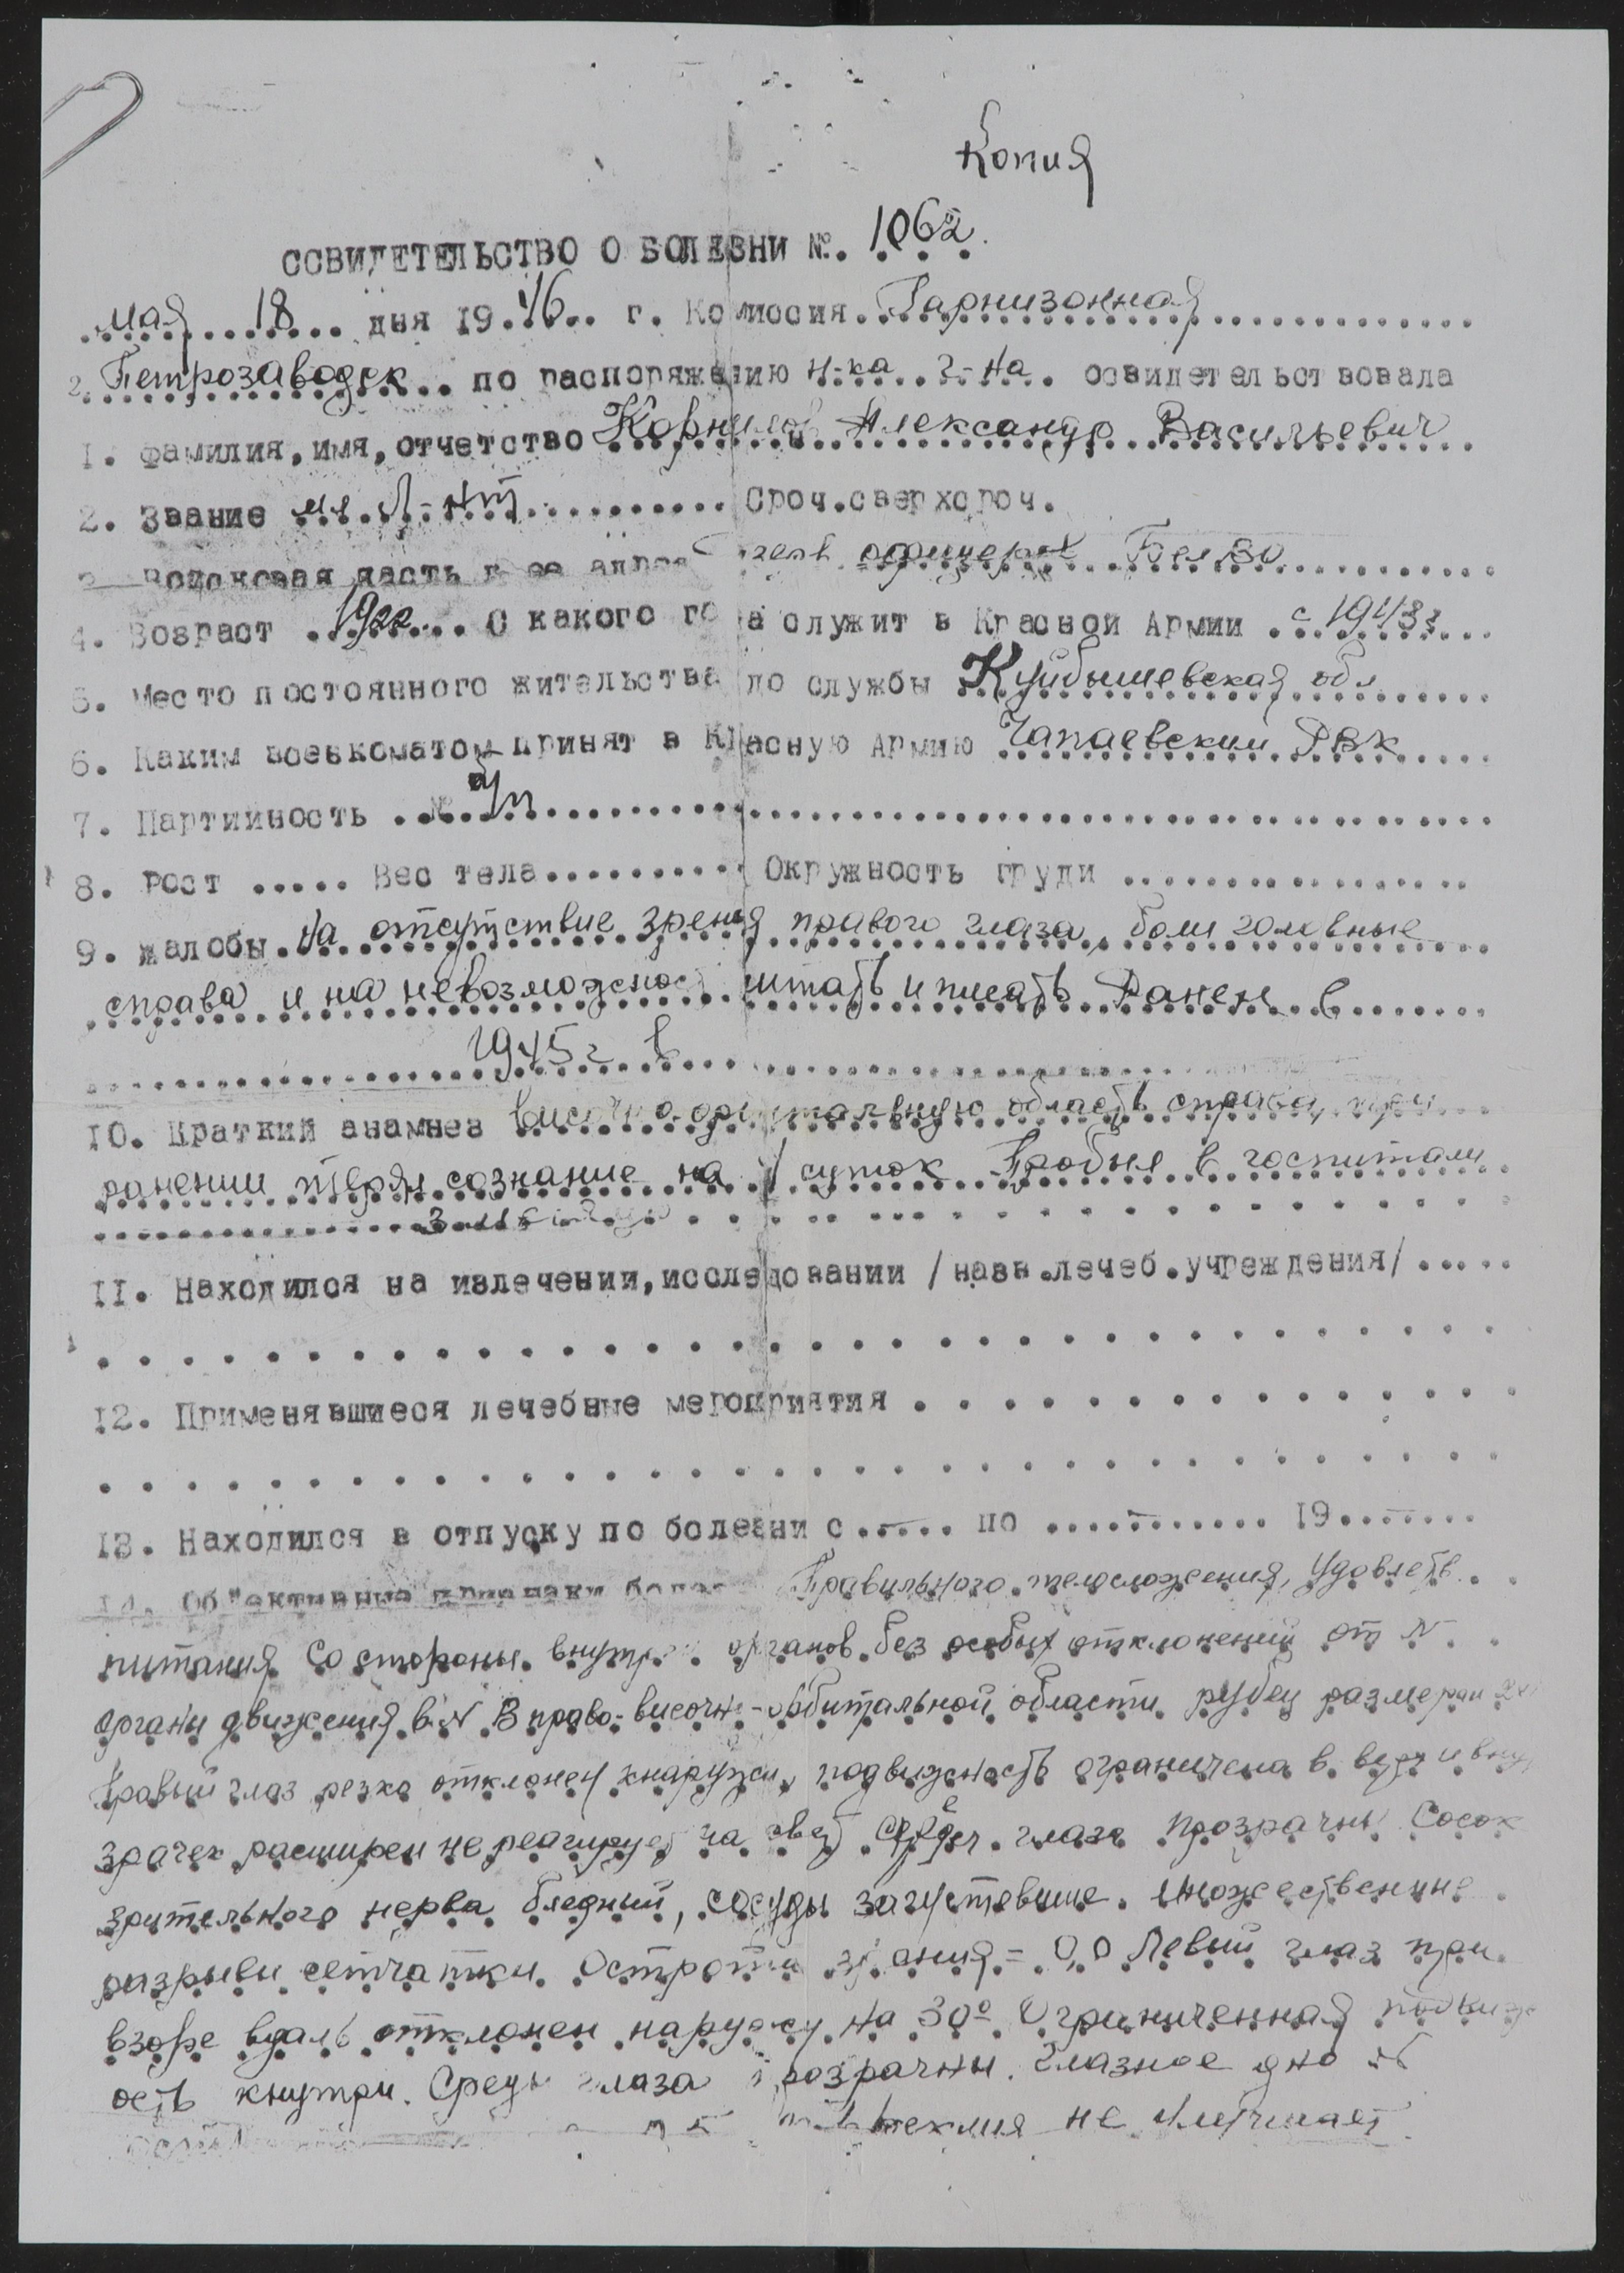 Копия
ССВИДЕТЕЛЬСТВО О БОЛЕЗНИ №. 1062.
мая 18 дня 1946 г. Комиссия Гарнизонная
г. Петрозаводск по распоряжению н-ка г-на освидетельствовала
1. Фамилия, имя, отчетство Корнилов Александр Васильевич
2. Звание мл л-нт Сроч.сверхсроч.
3 Войсковая часть и ее адрес офицеров Бел ВО
4. Возраст 1922 С какого года служит в Красной Армии с 1943г
5. Место постоянного жительства до службы Куйбышевская обл
6. Каким военкоматом принят в Красную Армию Чапаевским РВК
7. Партийность
8. Рост ..... Вес тела.......... Окружность груди .................
9. Жалобы На отсутствие зрения правого глаза, боли головные
справа и на невозможнос читать и писать Ранен в
1945 г в
10. Краткий анамнез височно-орбитальную область справа, при
ранении терял сознание на суток Пробыл в госпитали
3 месяца
11. Находился на излечении, исследовании /назв.лечеб.учреждения/ .....
12. Применявшиеся лечебные мероприятия
13. Находился в отпуску по болезни с ..... по ........... 19.......
14. Об"ективные признаки болез Правильного телосложения, удовлетв.
питания Со стороны внутр органов без особых отклонений от N
Органы движения в N В право-височн-орбитальной области рубец размером
Правый глаз резко отклонен кнаружи, подвижность ограничена в верх и вну
зрачек расширен не реагирует на свет глаза прозрачны Сосок
зрительного нерва бледный, сосуды запустевшие. Множественные
разрывы сетчатки. Острота зрения = 0,0 Левый глаз при
взоре вдаль отклонен наружу на 30° Ограниченная подвиж
ость кнутри. Среды глаза прозрачны. Глазное дно N
стекла не улучшает